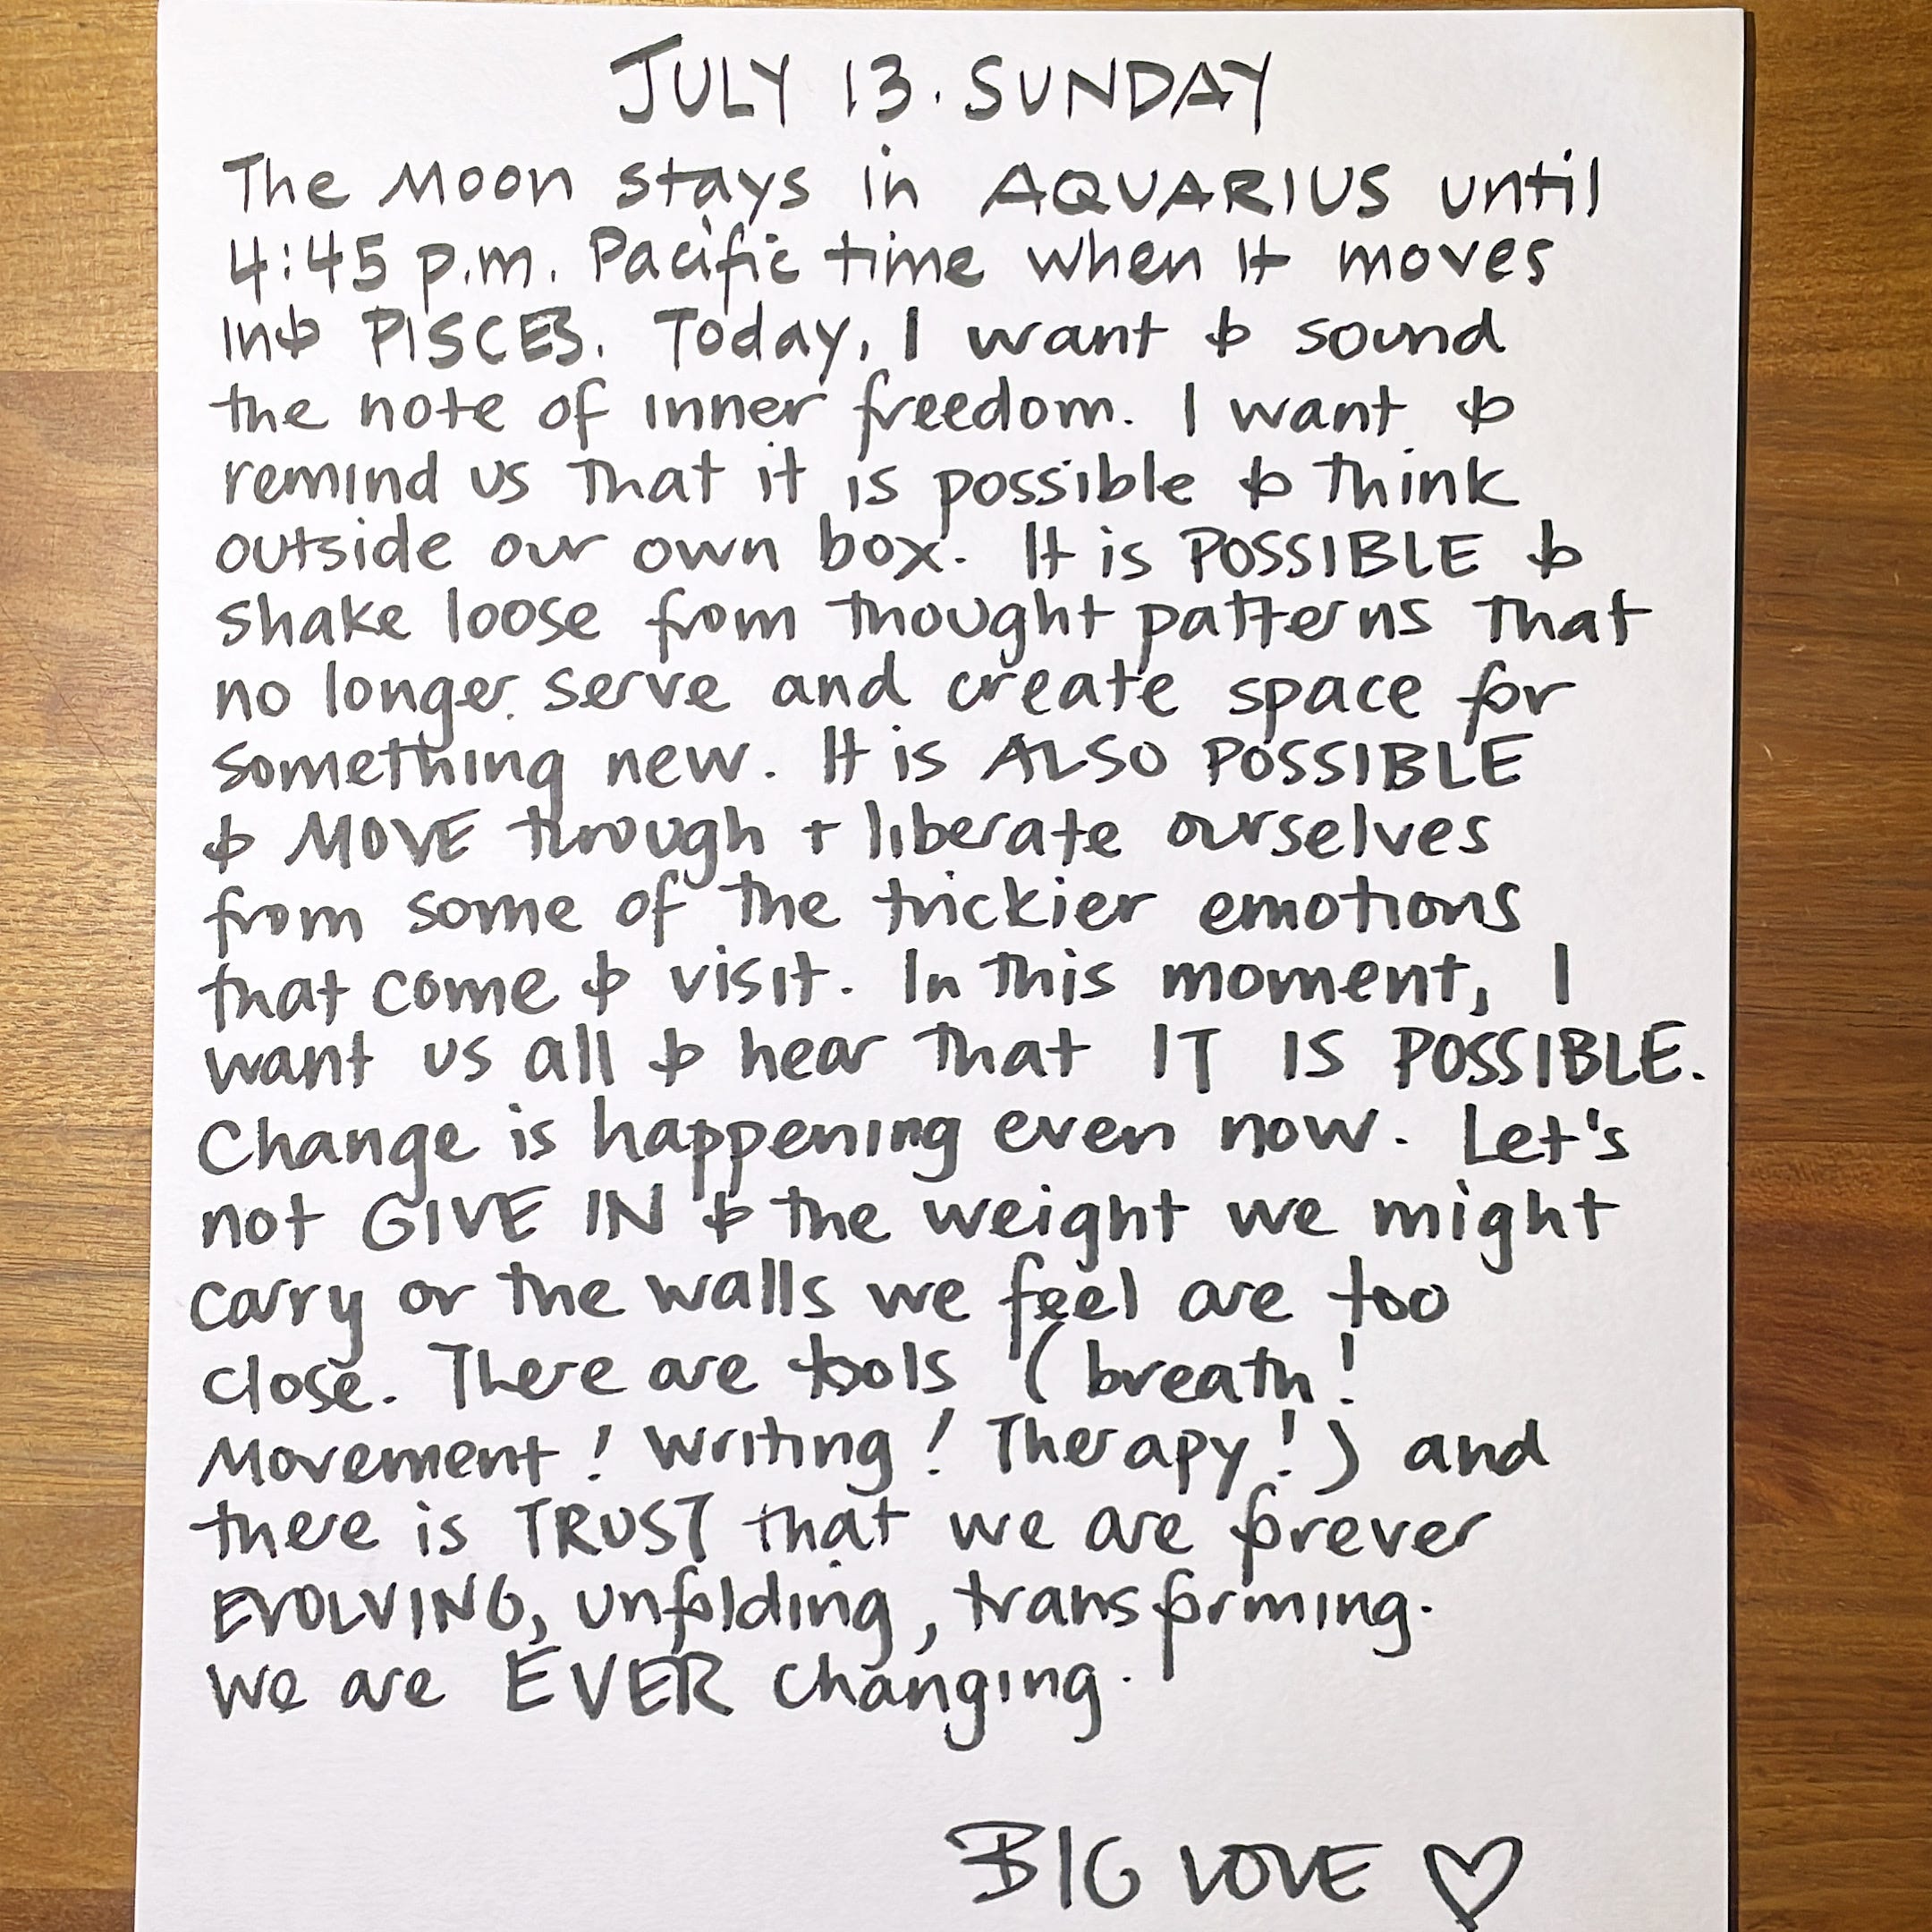 JULY 13. SUNDAY
The Moon stays in AQUARIUS until
4:45 p.m. Pacific time when it moves
into PISCES. Today, I want to sound
the note of inner freedom. I want to
remind us that it is possible to think
outside our own box. It is POSSIBLE to
shake loose from thought patterns that
no longer serve and create space for
something new. It is ALSO POSSIBLE
to MOVE through + liberate ourselves
from some of the trickier emotions
that come to visit. In this moment, I
want us all to hear that IT IS POSSIBLE.
Change is happening even now. Let's
not GIVE IN to the weight we might
carry or the walls we feel are too
close. There are tools (breath!
Movement! Writing! Therapy!) and
there is TRUST that we are forever
EVOLVING, unfolding, transforming.
We are EVER changing.
BIG LOVE ♡